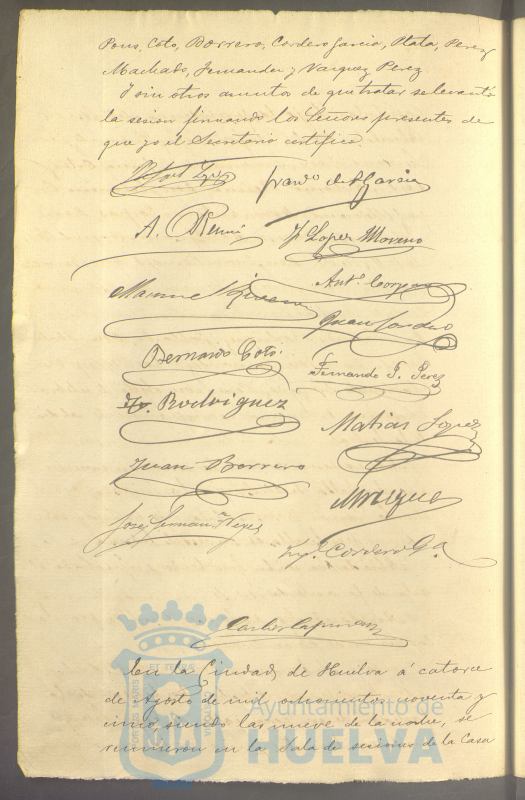 Pons, Coto, Borrero, Cordero Garcia, Plata, Perez
Machado, Fernandez y Vazquez Perez.
Y sin otros asuntos de que tratar se levantó
la sesion firmando los Señores presentes de
que yo el Secretario certifico.
de Garcia
A.
J. Lopez Moreno
Manuel
Antº
Juan Cordero
Bernardo Coto.
Fernando P. Perez
Rodriguez
Matias Lopez
Juan Borrero
José
Cordero Gª
En la Ciudad de Huelva á catorce
de Agosto de mil ochocientos noventa y
cinco, siendo las nueve de la noche, se
reunieron en la Sala de sesiones de la Casa
Ayuntamiento de
HUELVA